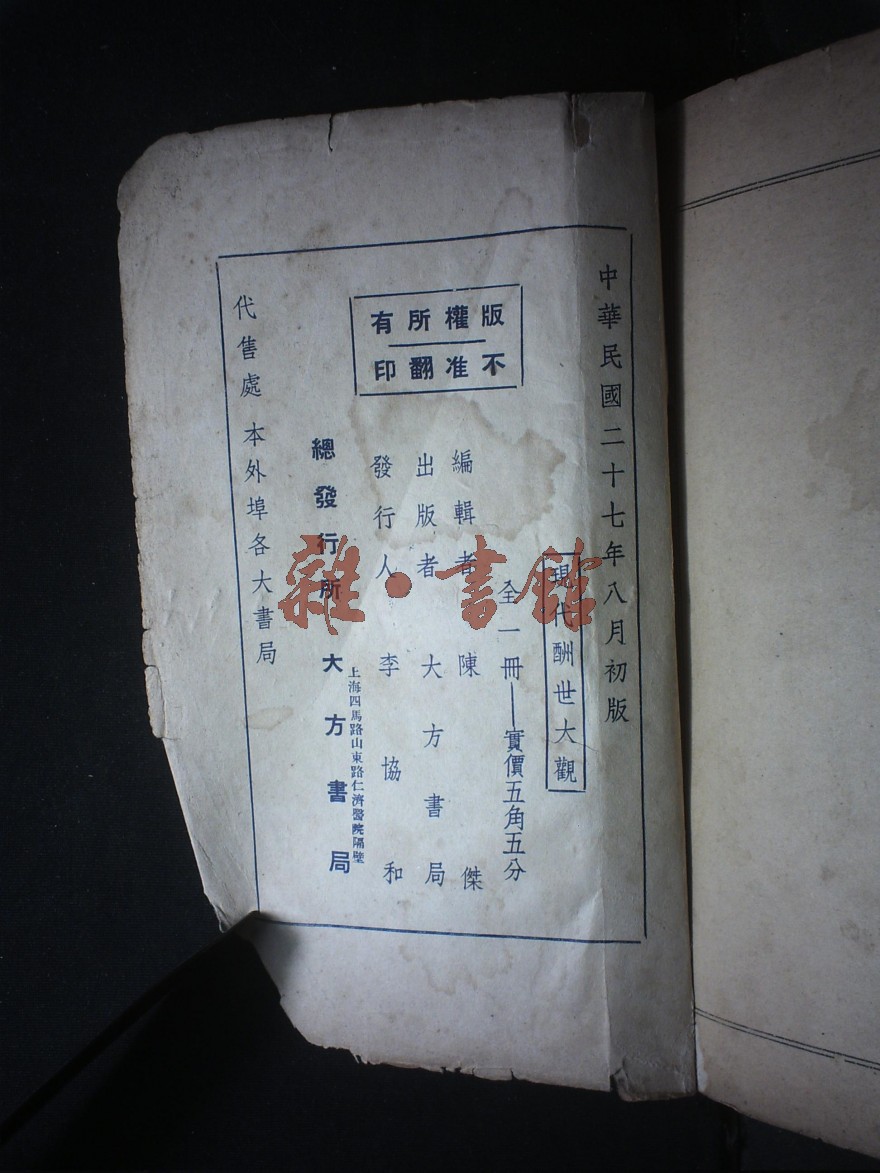 中華民國二十七年八月初版
現代酬世大觀
全一冊——實價五角五分
版權所有
不准翻印
編輯者 陳傑
出版者 大方書局
發行人 李協和
上海四馬路山東路仁濟醫院隔壁
總發行所 大方書局
代售處 本外埠各大書局
雜·書館